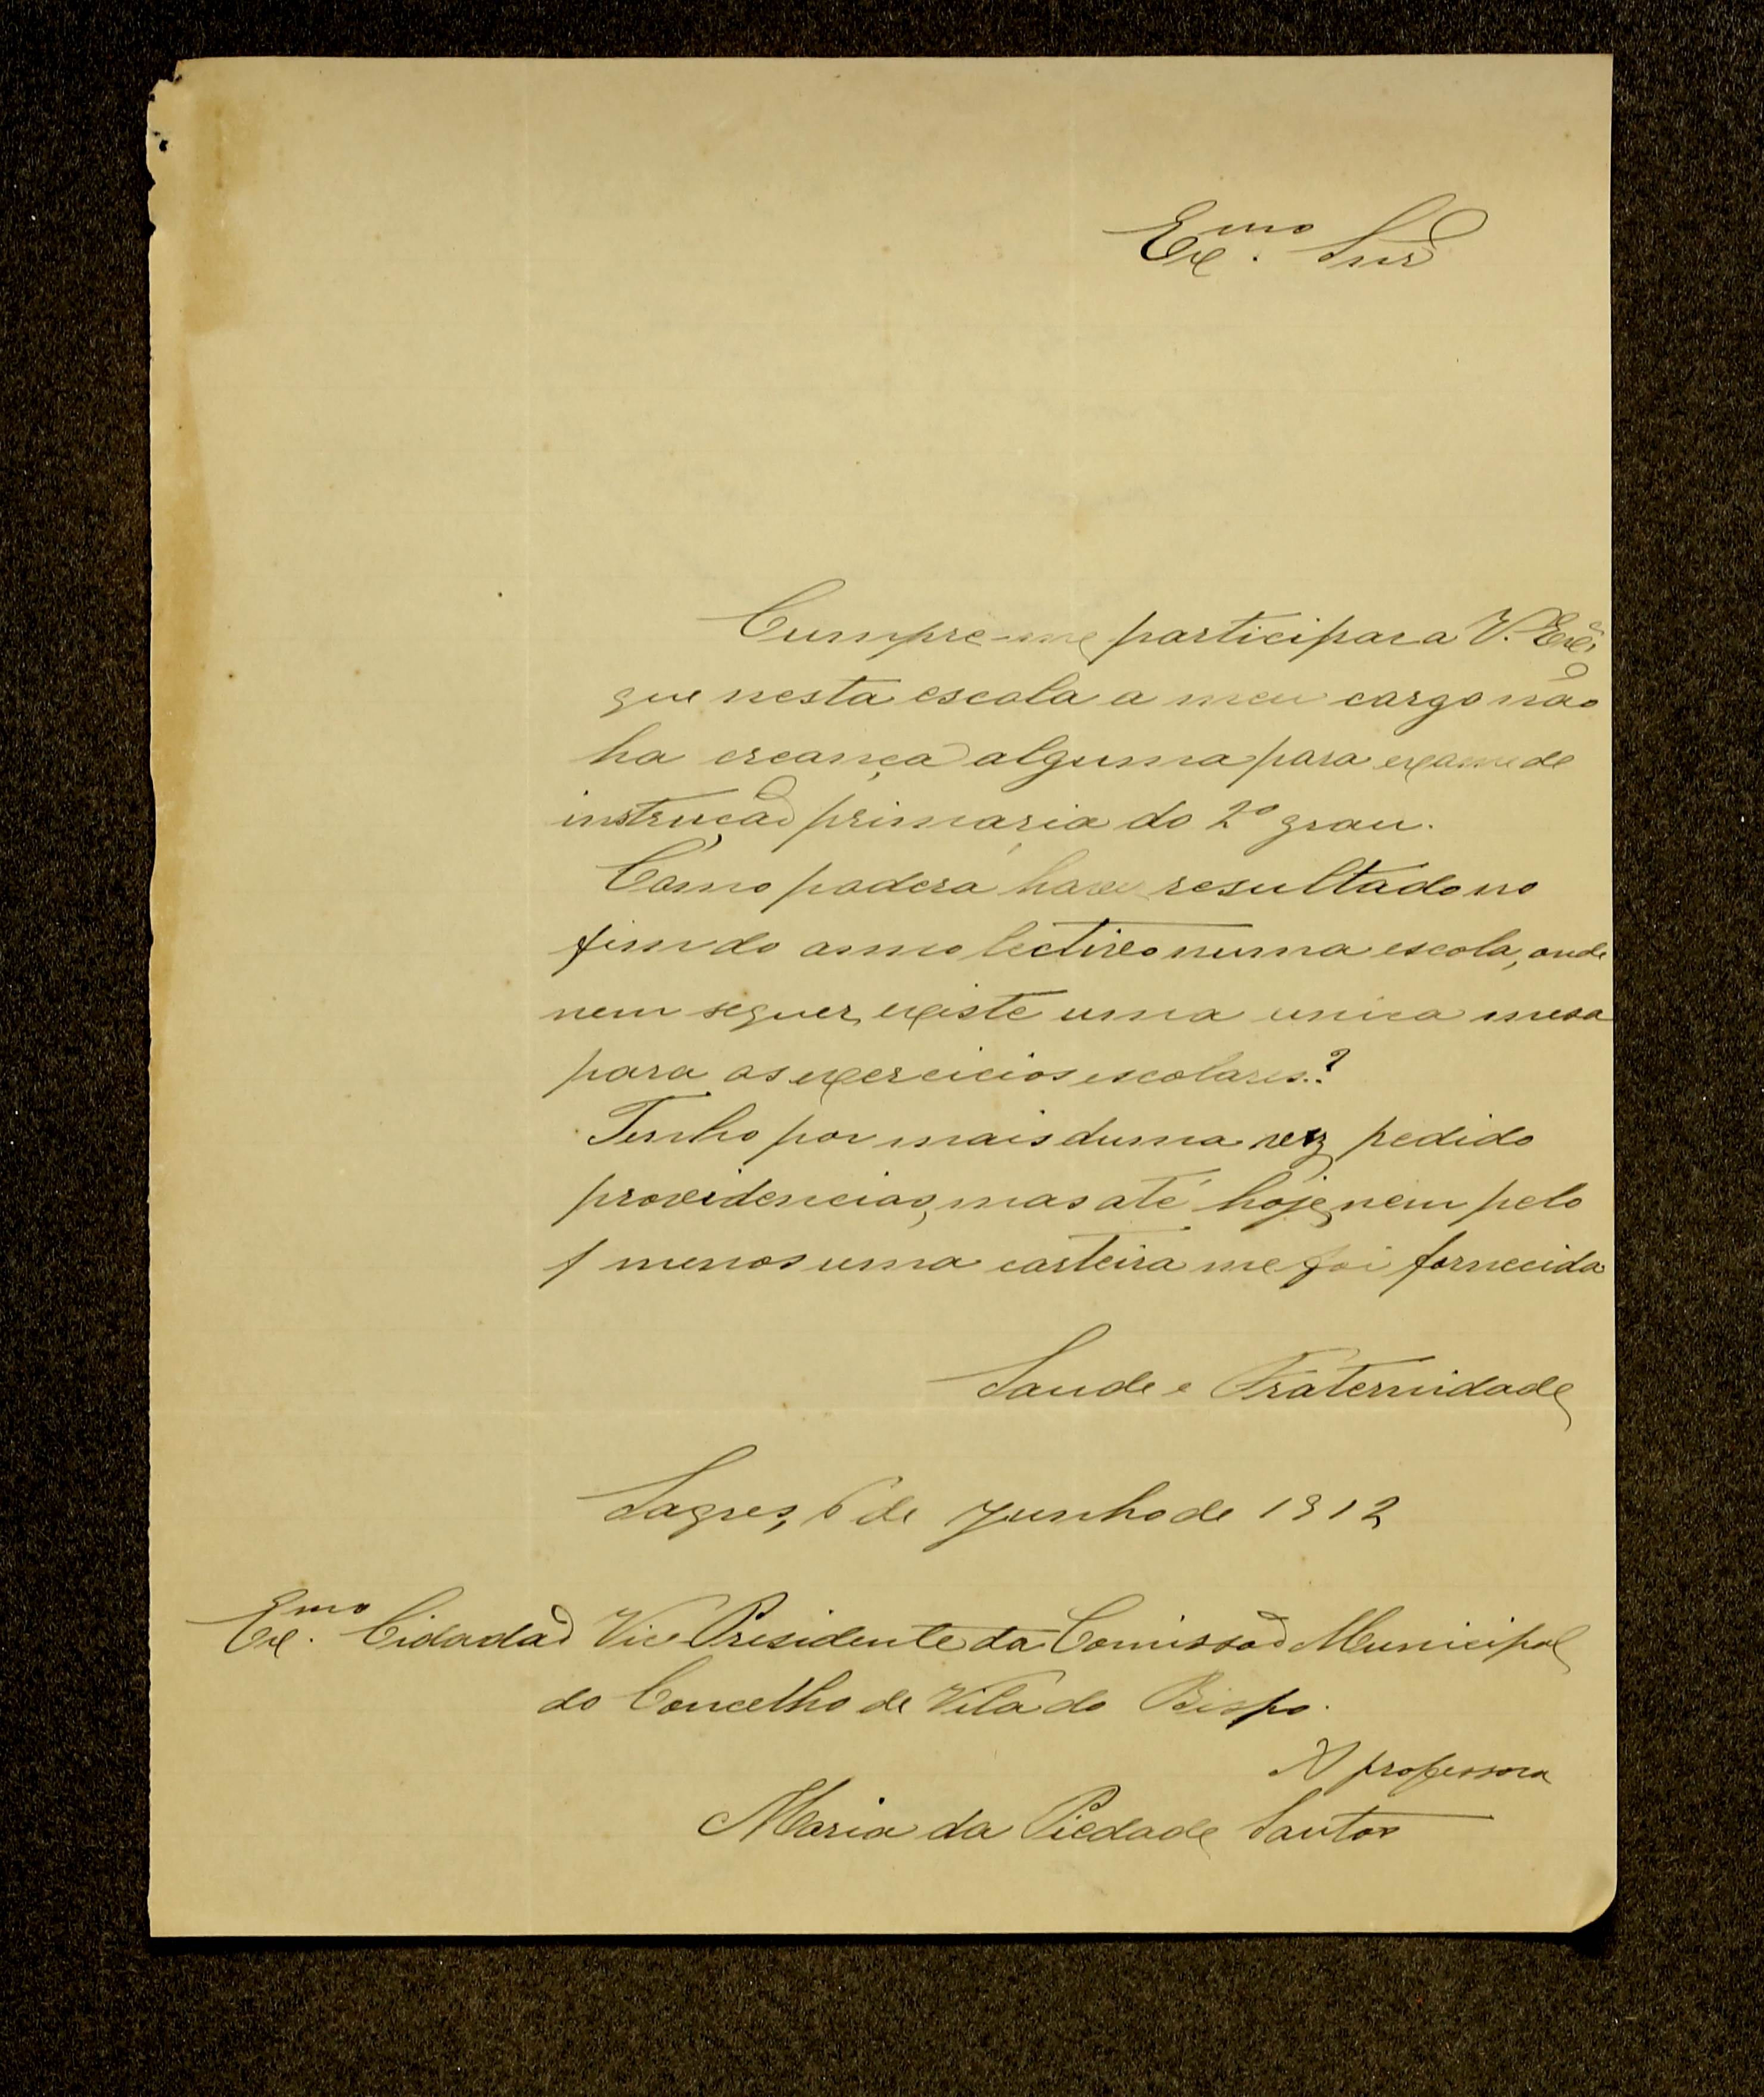 Ex.mo Snr
Cumpre-me participar a V. Exª,
que nesta escola a meu cargo não
ha creança alguma para exame de
instrução primária do 2º grau.
Como poderá haver resultado no
fim do anno lectivo numa escola, onde
nem sequer, existe uma unica mesa
para os exercicios escolares?
Tenho por mais duma vez pedido
providencias, mas até hoje, nem pelo
menos uma carteira me foi fornecida
Saude e Fraternidade
Sagres, 6 de Junho de 1912
Ex.mo Cidadão Vice Presidente da Comissão Municipal
do Concelho de Vila do Bispo.
A professora
Maria da Piedade Santos